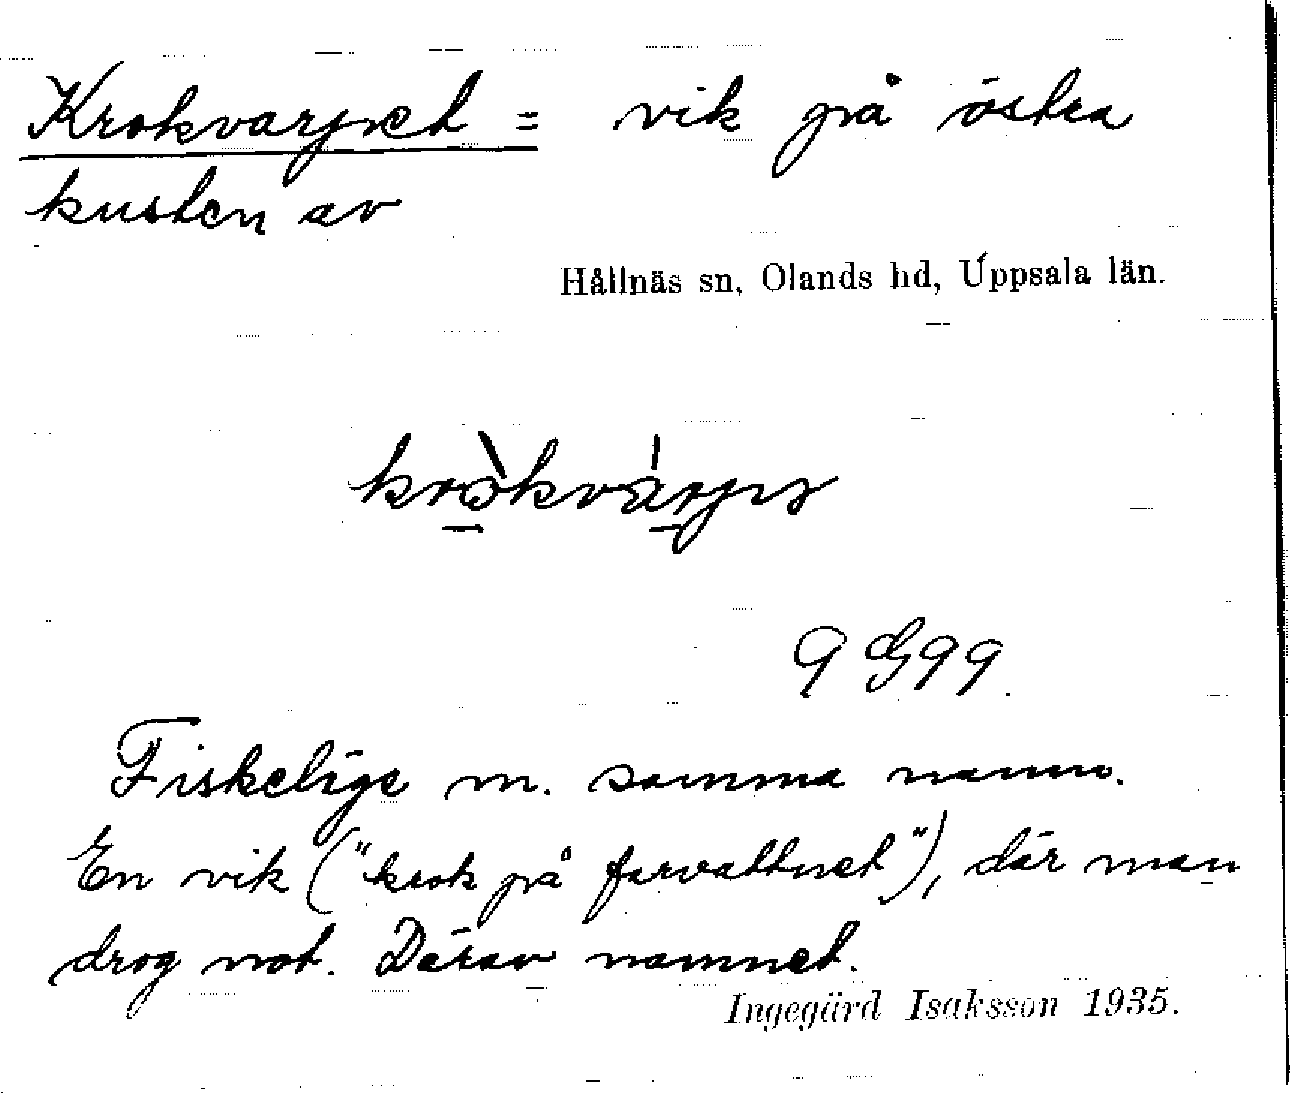 Krokvarpet = vik på östra
kusten av
Hållnäs sn, Olands hd, Uppsala län.
9 G 99.
Fiskeläge m. samma namn.
En vik ("krok på farvattnet"), där man
drog not. Därav namnet.
Ingegärd Isaksson 1935.